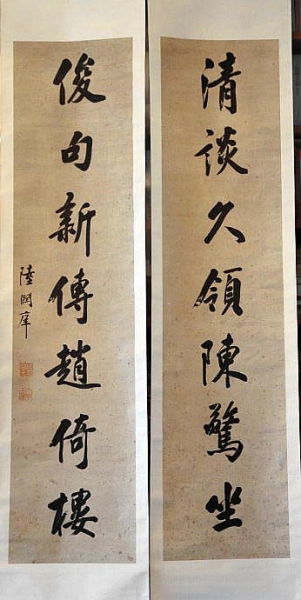 清談久領陳驚坐
俊句新傳趙倚樓
陸潤庠